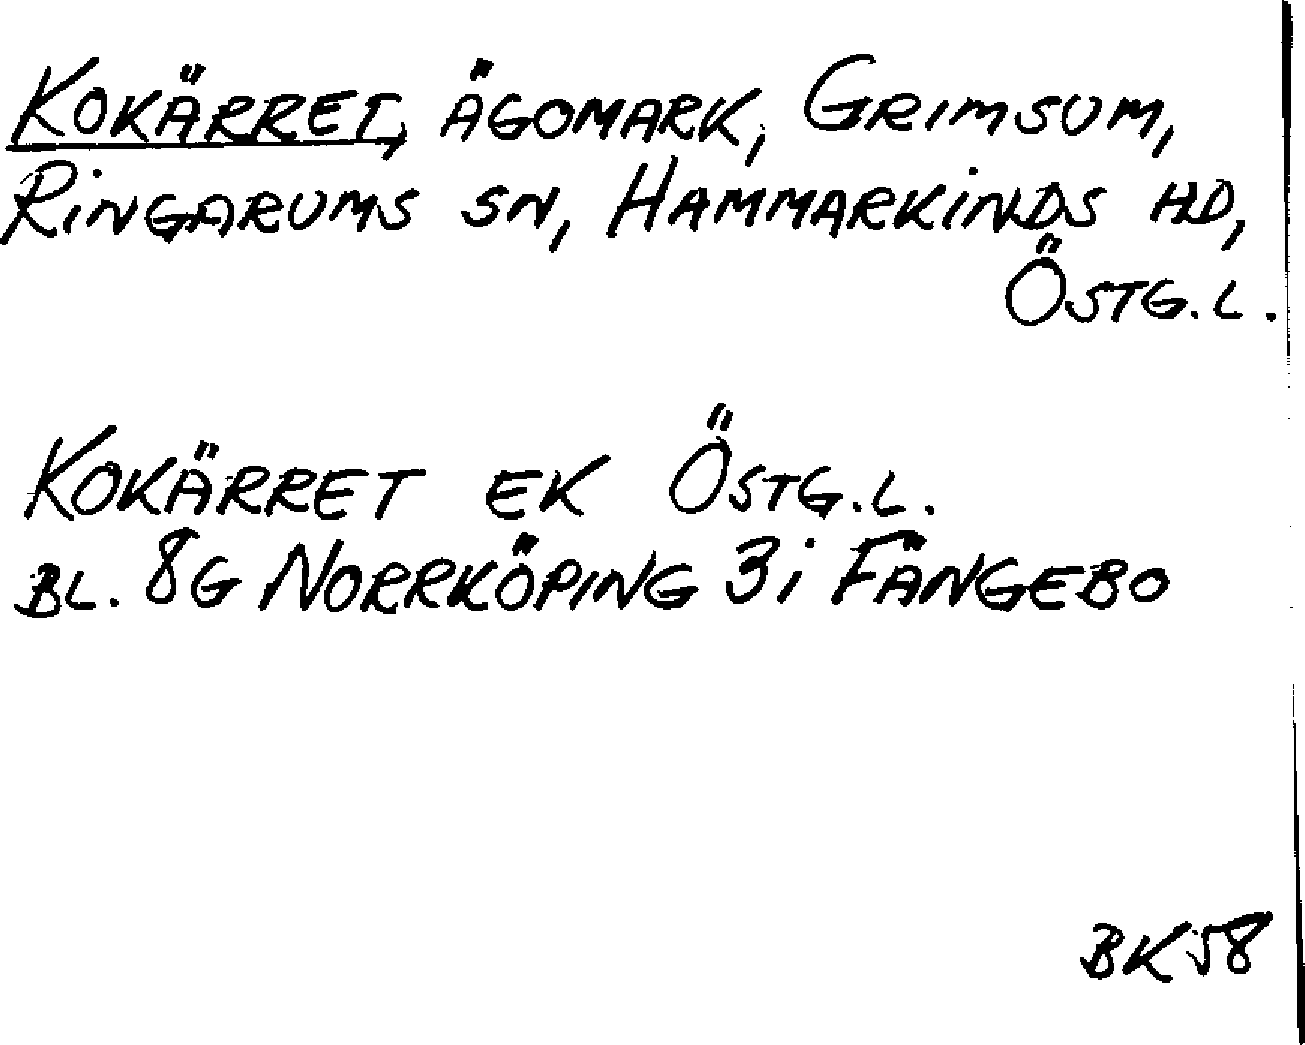 KOKÄRRET, ÄGOMARK, GRIMSUM,
RINGARUMS SN, HAMMARKINDS HD,
ÖSTG.L.
KOKÄRRET EK ÖSTG.L.
BL. 8G NORRKÖPING 3i FÄNGEBO
BK58